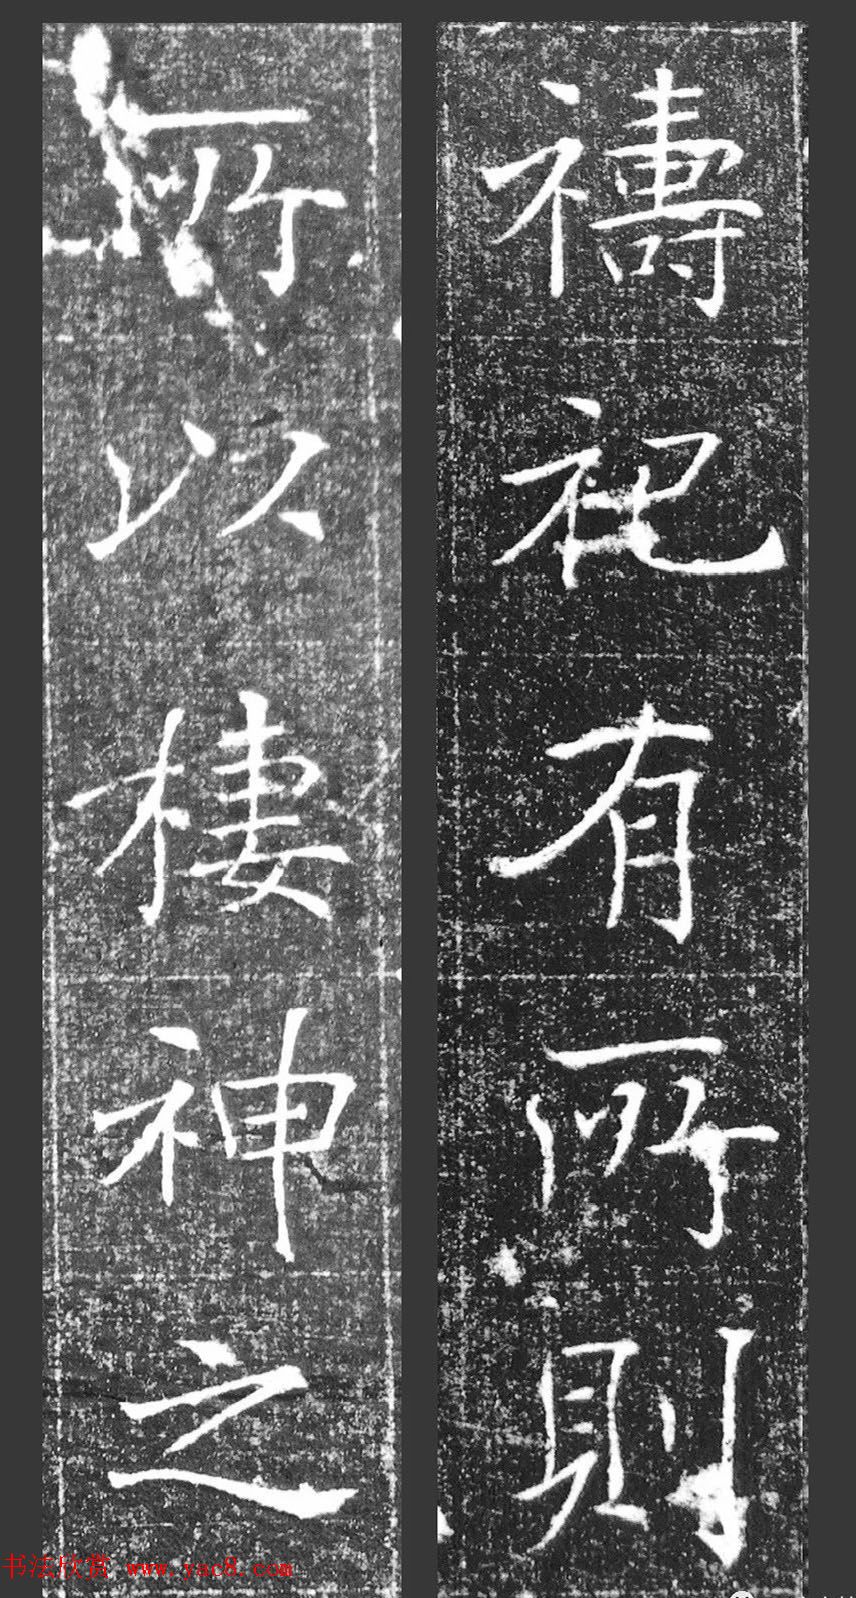 禱祀有所則
所以棲神之
书法欣赏 www.yac8.com